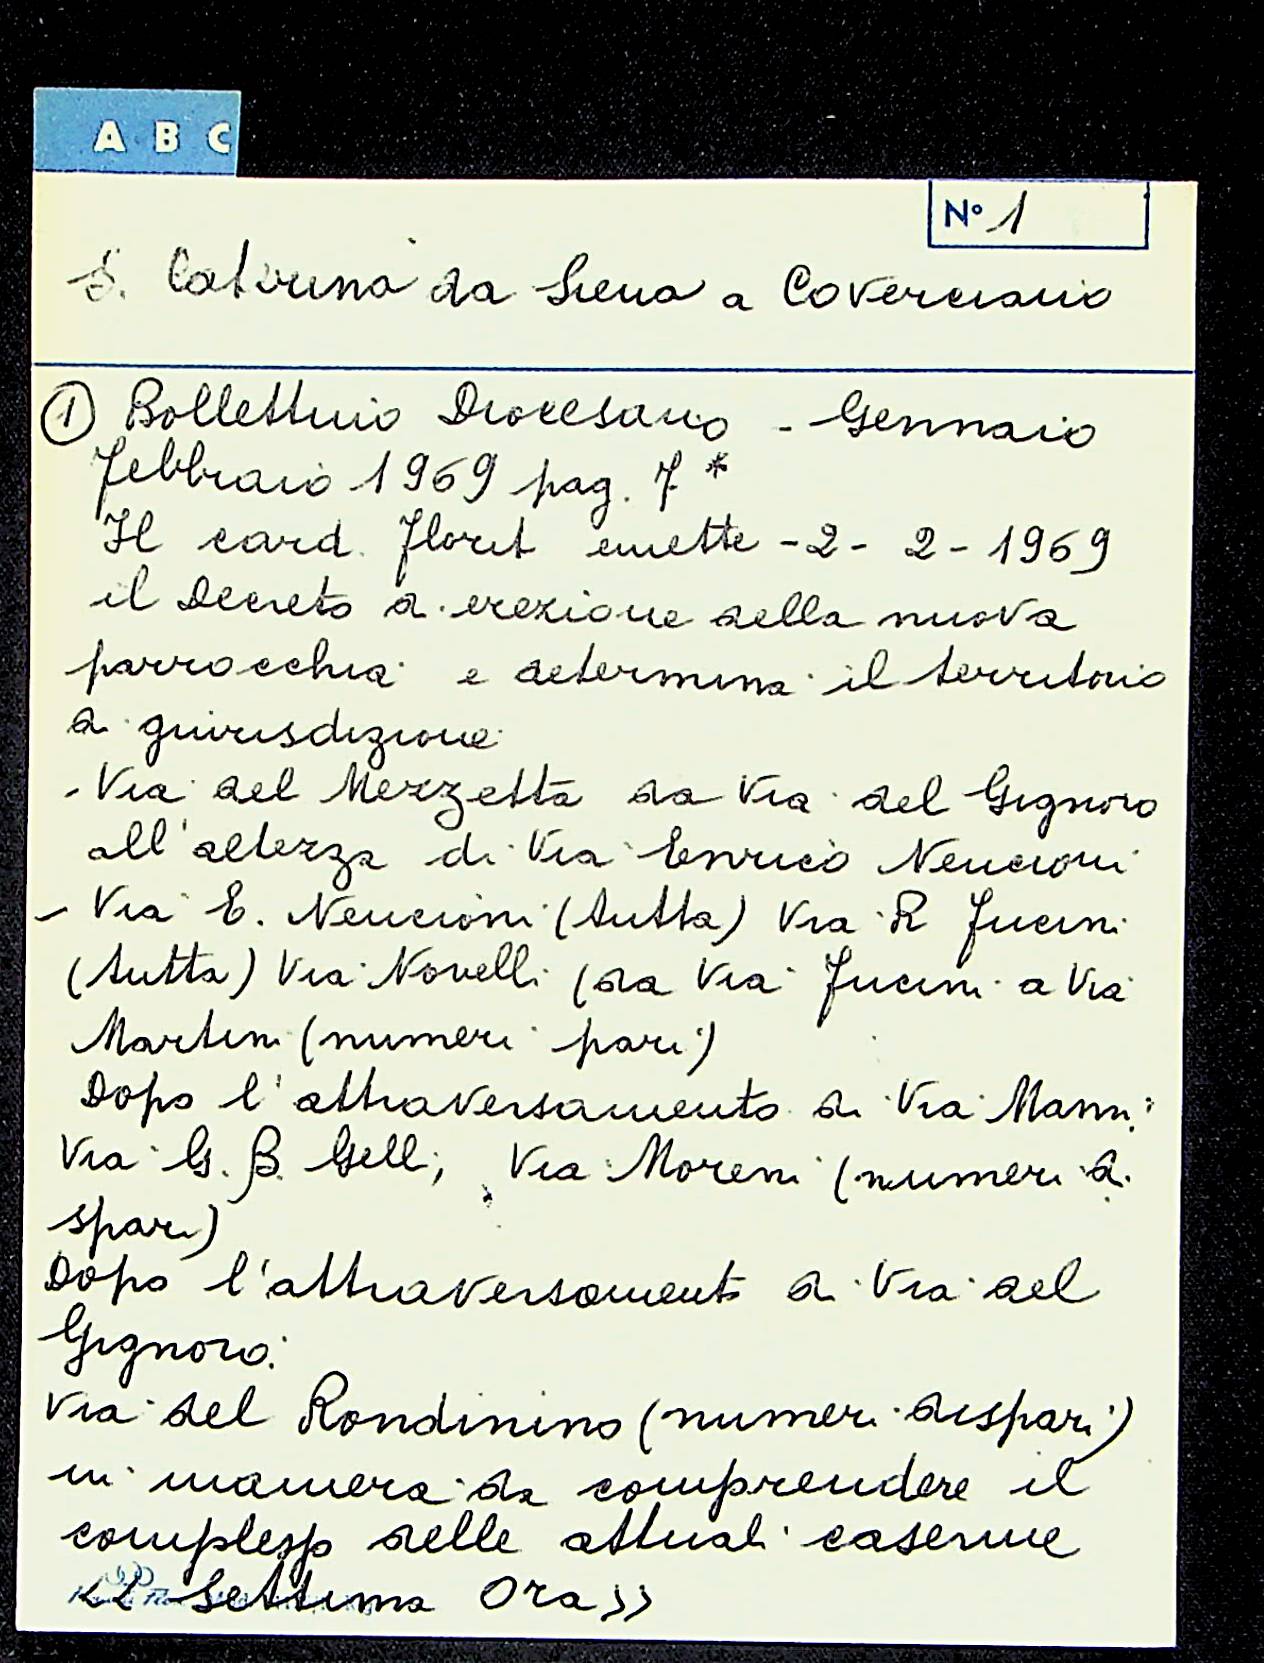 A B C
N° 1
S. Caterina da Siena a Coverciano
1 Bollettino Diocesano - Gennaio
Febbraio 1969 pag. 7 *
Il card. Florit emette - 2 - 2 - 1969
il Decreto di erezione della nuova
parrocchia e determina il territorio
di giurisdizione
- Via del Mezzetta da Via del Gignoro
all'altezza di Via Enrico Nencioni
- Via E. Nencioni (tutta) Via R Fucini
(tutta) Via Novelli (da Via Fucini a Via
Martini (numeri pari)
Dopo l'attraversamento di Via Manni:
Via G. B. Gelli, Via Moreni (numeri di
spari)
Dopo l'attraversamento di Via del
Gignoro:
Via del Rondinino (numeri dispari)
in maniera da comprendere il
complesso delle attuali caserme
<< Settima Ora >>